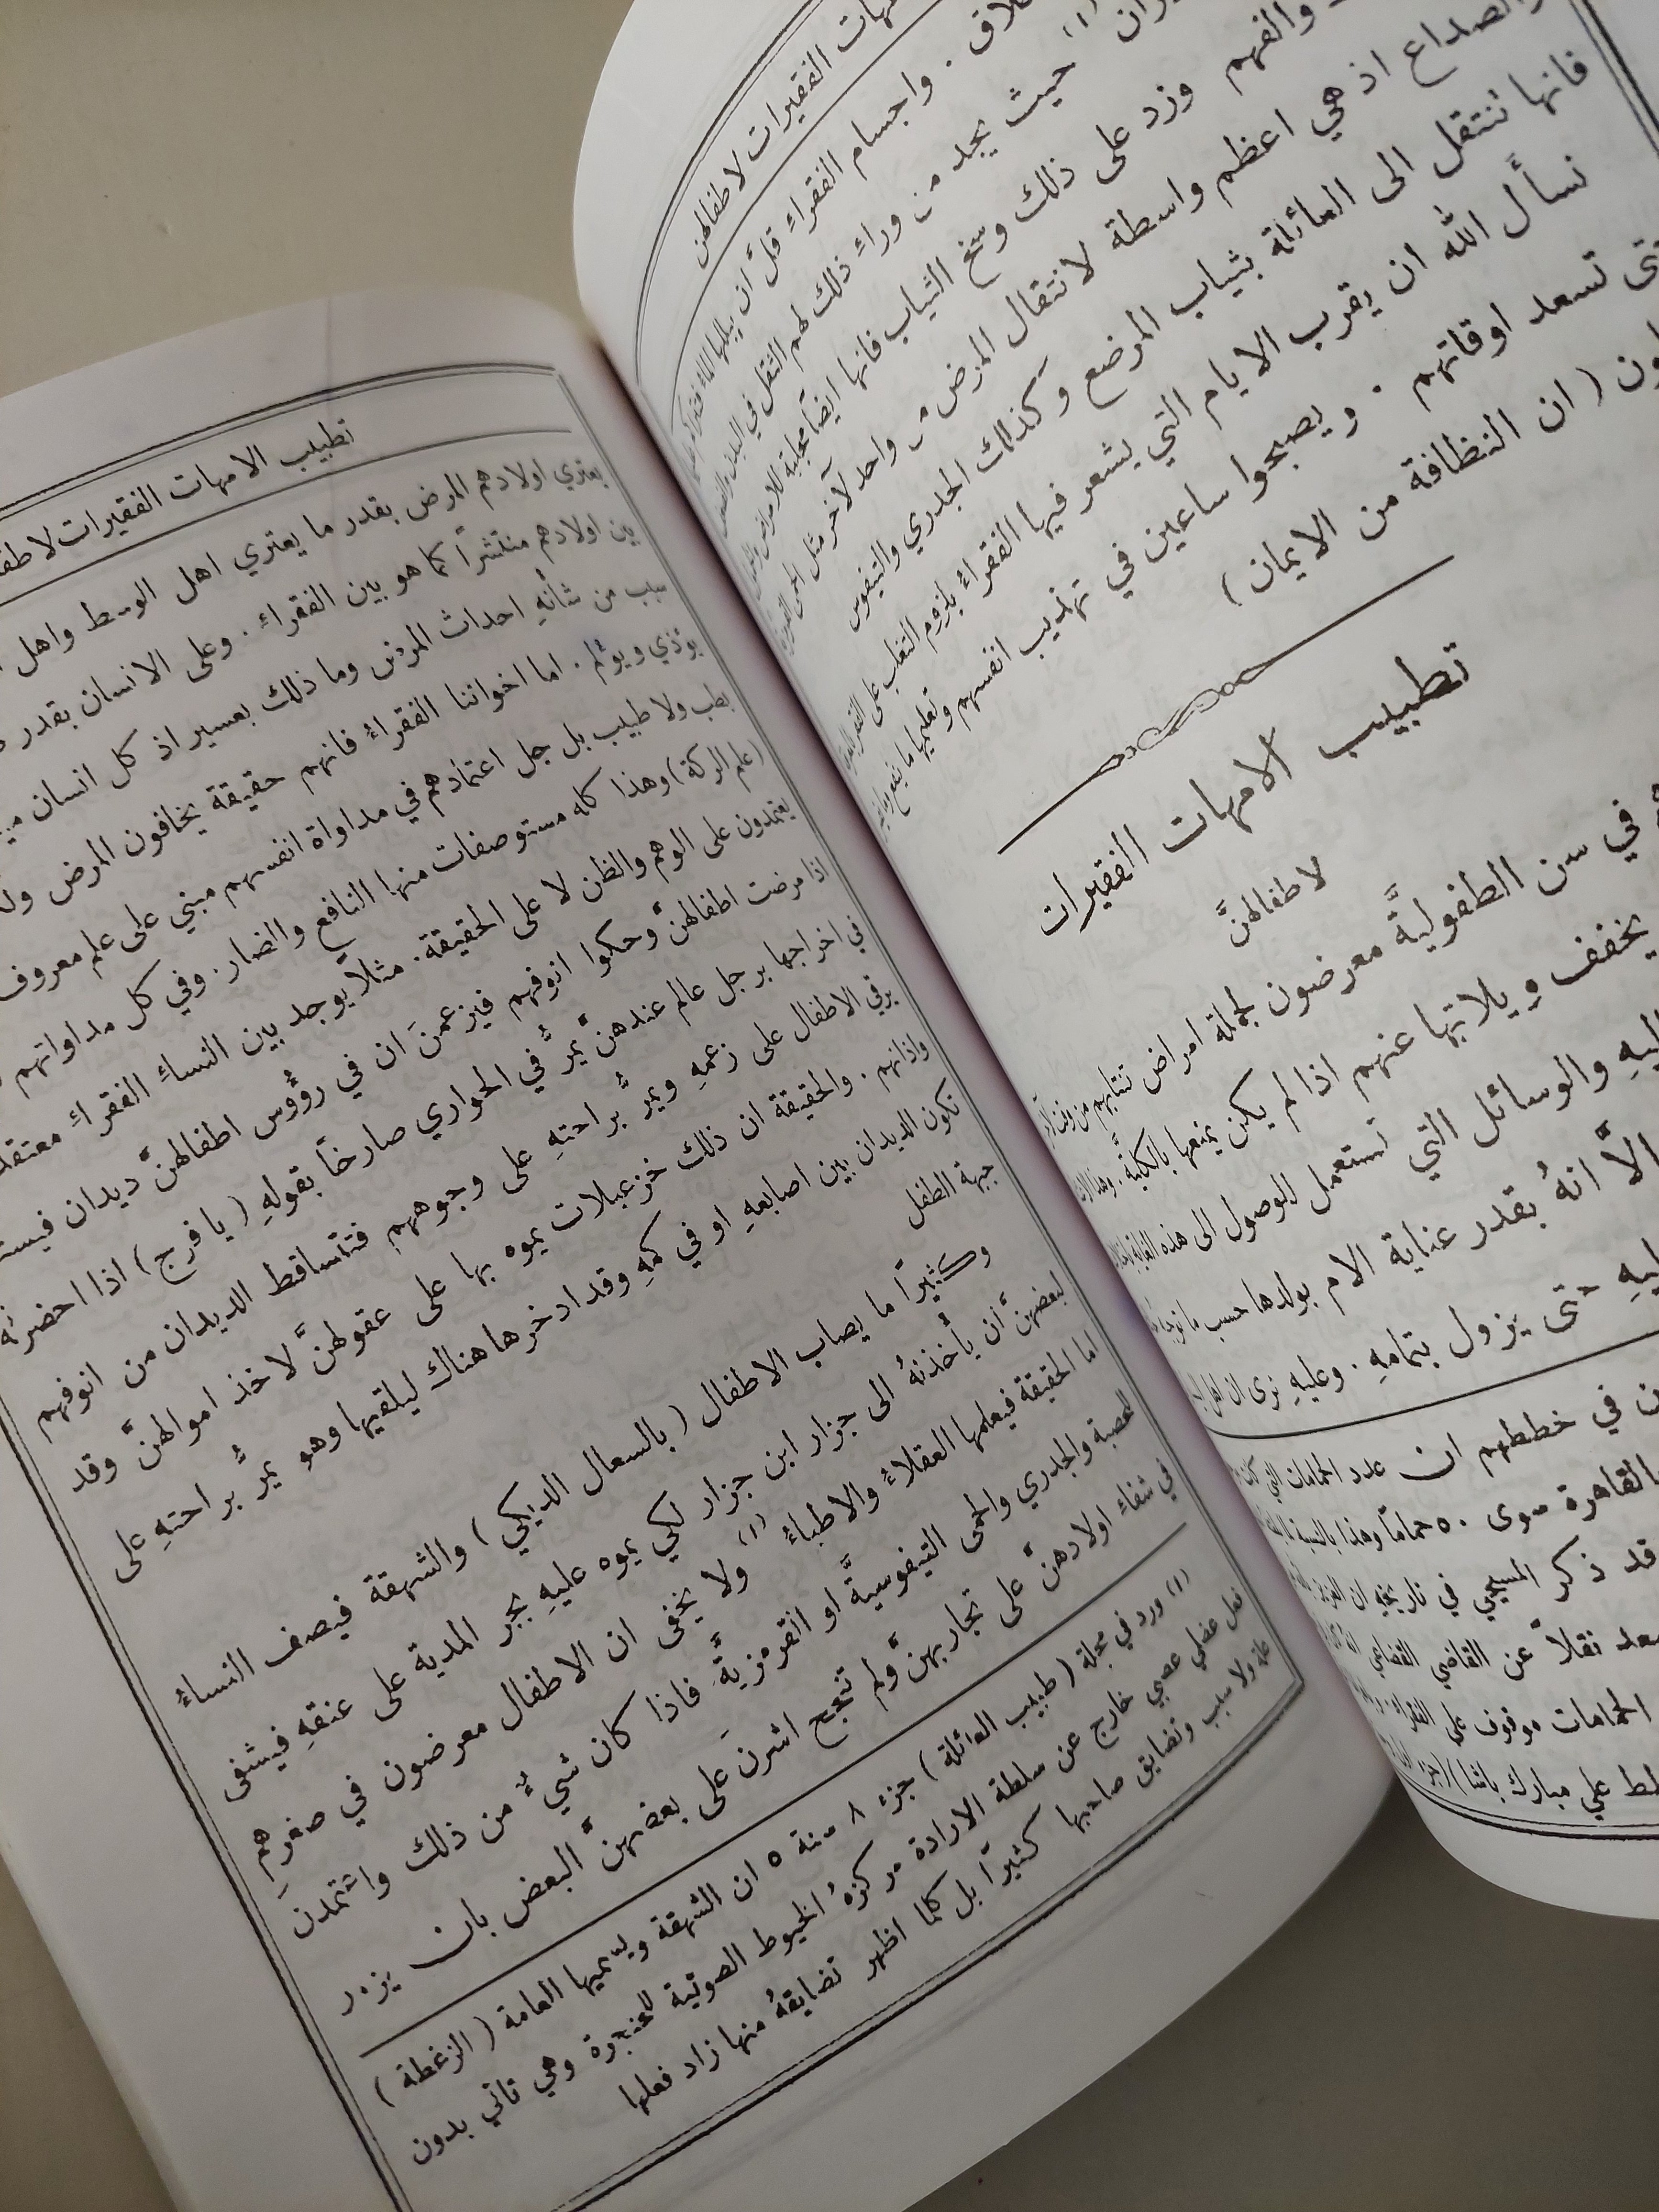 الفقيرات لاطفالهن
واجسام الفقراء قلَّ ان
حيث يجد من وراء ذلك لهم الثقل في
والفهم وزد على ذلك وسخ الثياب فانها ايضاً مجلبة للامراض
والصداع اذ هي اعظم واسطة لانتقال المرض من واحد لآخر مثل الحمى
فانها تنتقل الى العائلة بثياب المرضع وكذلك الجدري والتيفوس
نسأل الله ان يقرب الايام التي يشعر فيها الفقراء بلزوم التغلب على الفقر
تسعد اوقاتهم . ويصبحوا ساعين في تهذيب انفسهم وتعليمها ما ينفع
( ان النظافة من الايمان )
تطبيب الامهات الفقيرات
لاطفالهنَّ
في سن الطفوليَّة معرضون لجملة امراض تنتابهم من وقت
يخفف ويلاتها عنهم اذا لم يكن يمنعها بالكليَّة .
اليهِ والوسائل التي تستعمل للوصول الى هذه الغاية
الاَّ انهُ بقدر عناية الام بولدها حسب ما
حتى يزول بتمامهِ . وعليهِ نرى ان اهل
في خططهم ان عدد الحمامات التي
القاهرة سوى ٥٠ حماماً وهذا بالنسبة
قد ذكر المسبحي في تاريخهِ ان العزيز
نقلاً عن القاضي القضاعي
الحمامات موقوف على الفقراء
علي مبارك باشا )
تطبيب الامهات الفقيرات
يعتري اولادهم المرض بقدر ما يعتري اهل الوسط واهل
بين اولادهم منتشراً كما هو بين الفقراء . وعلى الانسان بقدر
سبب من شأنهِ احداث المرض وما ذلك بعسير اذ كل انسان
يؤذي ويؤلم . اما اخواننا الفقراءُ فانهم حقيقة يخافون المرض
بطب ولا طبيب بل جل اعتمادهم في مداواة انفسهم مبني على علم معروف
( علم الركة ) وهذا كله مستوصفات منها النافع والضار . وفي كل مداواتهم
يعتمدون على الوهم والظن لا على الحقيقة . مثلاً يوجد بين النساء الفقراء
اذا مرضت اطفالهنَّ وحكوا انوفهم فيزعمنَ ان في رؤُوس اطفالهنَّ ديدان
في اخراجها برجل عالم عندهنَّ يمرُّ في الحواري صارخاً بقولهِ ( يا فرج ) اذا احضرنهُ
يرقي الاطفال على زعمهِ ويمرُّ براحتهِ على وجوههم فتتساقط الديدان من انوفهم
واذانهم . والحقيقة ان ذلك خزعبلات يموه بها على عقولهنَّ لاخذ اموالهنَّ وقد
تكون الديدان بين اصابعهِ او في كمهِ وقد ادخرها هناك ليلقيها وهو يمرُّ براحتهِ على
جبهة الطفل
وكثيراً ما يصاب الاطفال ( بالسعال الديكي ) والشهقة فيصف النساءُ
لبعضهنَّ ان يأخذنهُ الى جزار ابن جزار لكي يموه عليهِ بجر المدية على عنقهِ فيشفى
اما الحقيقة فيعلمها العقلاءُ والاطباءُ (١) ولا يخفى ان الاطفال معرضون في صغرهم
للحصبة والجدري والحمى التيفوسيَّة او القرمزيَّةِ فاذا كان شيءٌ من ذلك واعتمدن
في شفاء اولادهنَّ على تجاربهنَّ ولم تنجح اشرنَ على بعضهنَّ البعض بان يزر
(١) ورد في مجلة ( طبيب العائلة ) جزء ٨ سنة ٥ ان الشهقة ويسميها العامة ( الزغطة )
فعل عضلي عصبي خارج عن سلطة الارادة مركزهُ الخيوط الصوتية للحنجرة وهي تاتي بدون
علة ولا سبب وتضايق صاحبها كثيراً بل كلما اظهر تضايقهُ منها زاد فعلها